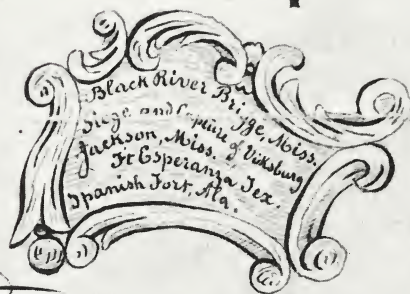 Black River Bridge, Miss.
Siege and Capture of Vicksburg
Jackson, Miss.
Ft Esperanza Tex.
Spanish Fort, Ala.